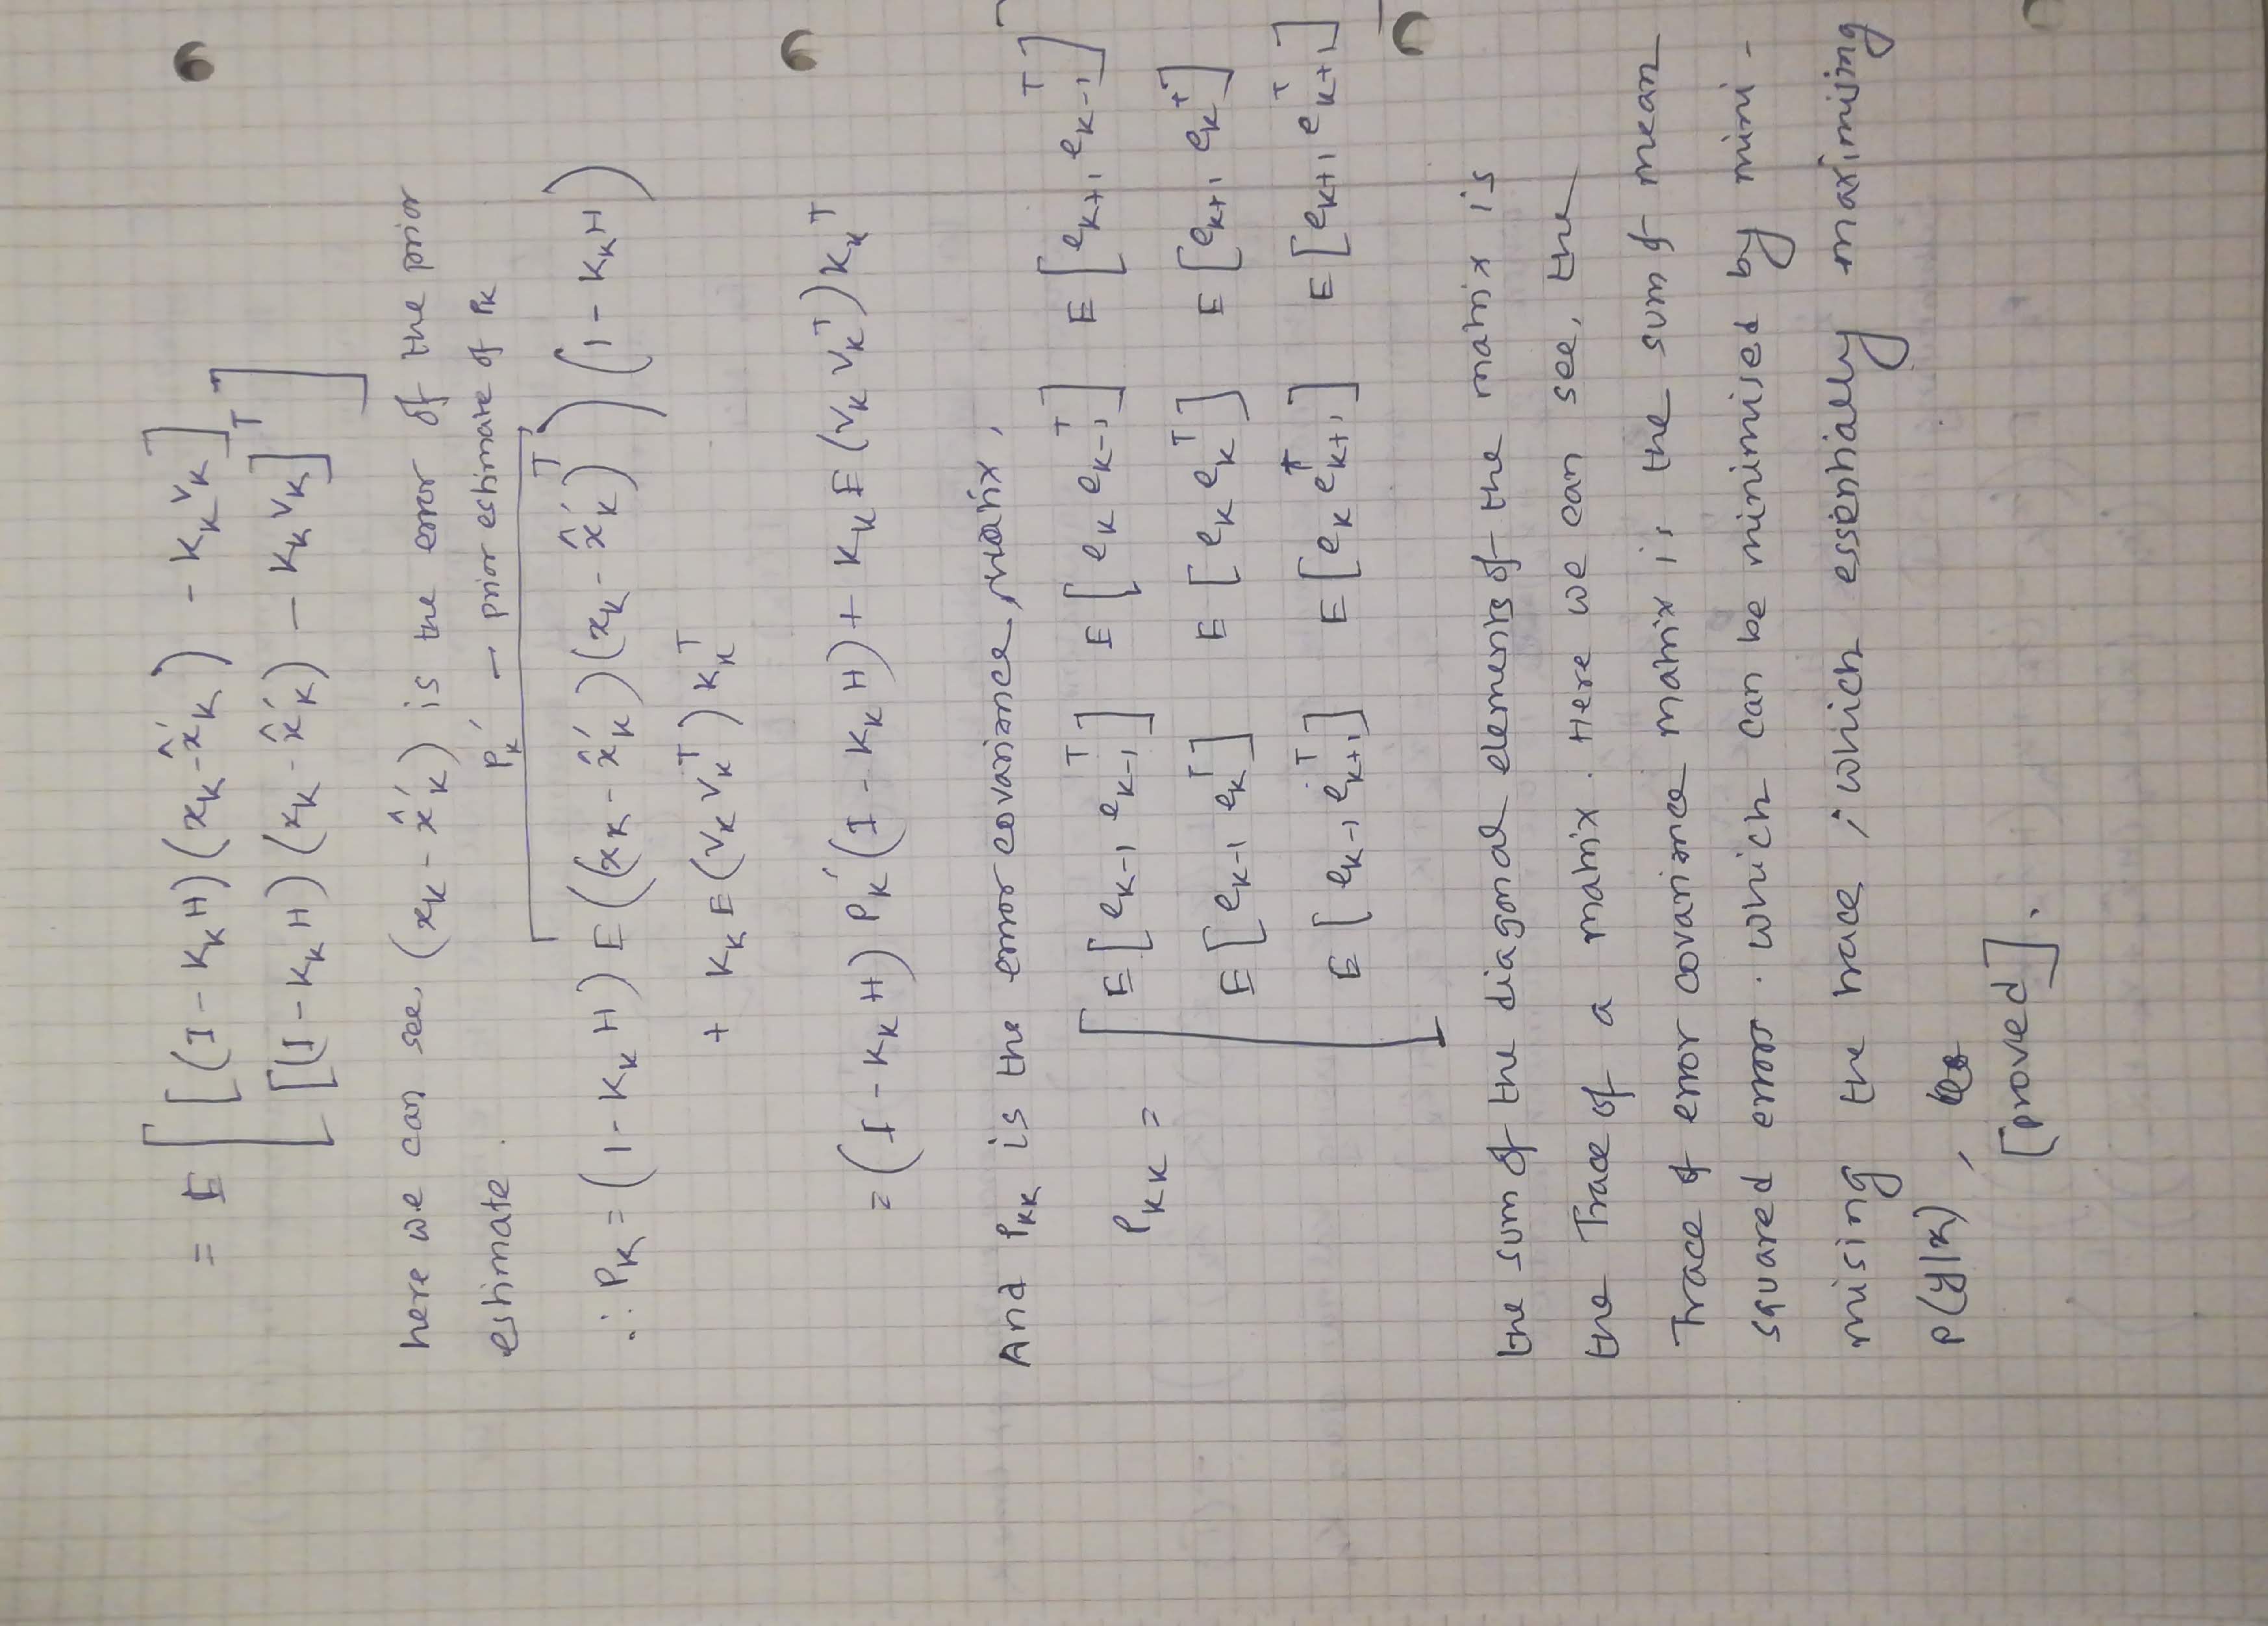 = E [ [(I - K_K H) (x_K - x̂'_K) - K_K V_K]
[(I - K_K H) (x_K - x̂'_K) - K_K V_K]^T ]
here we can see, (x_K - x̂'_K) is the error of the prior
estimate.
P'_K - prior estimate of P_K
∴ P_K = (1 - K_K H) E((x_K - x̂'_K)(x_K - x̂'_K)^T) (1 - K_K H)
+ K_K E(V_K V_K^T) K_K^T
= (I - K_K H) P'_K (I - K_K H) + K_K E(V_K V_K^T) K_K^T
And P_KK is the error covariance matrix,
P_KK = [ E[e_K-1 e_K-1^T] E[e_K e_K-1^T] E[e_K+1 e_K-1^T]
E[e_K-1 e_K^T] E[e_K e_K^T] E[e_K+1 e_K^T]
E[e_K-1 e_K+1^T] E[e_K e_K+1^T] E[e_K+1 e_K+1^T] ]
the sum of the diagonal elements of the matrix is
the Trace of a matrix. Here we can see, the
Trace of error covariance matrix is the sum of mean
squared error. which can be minimised by mini-
mising the trace, which essentially maximising
P(y|x),
[proved].